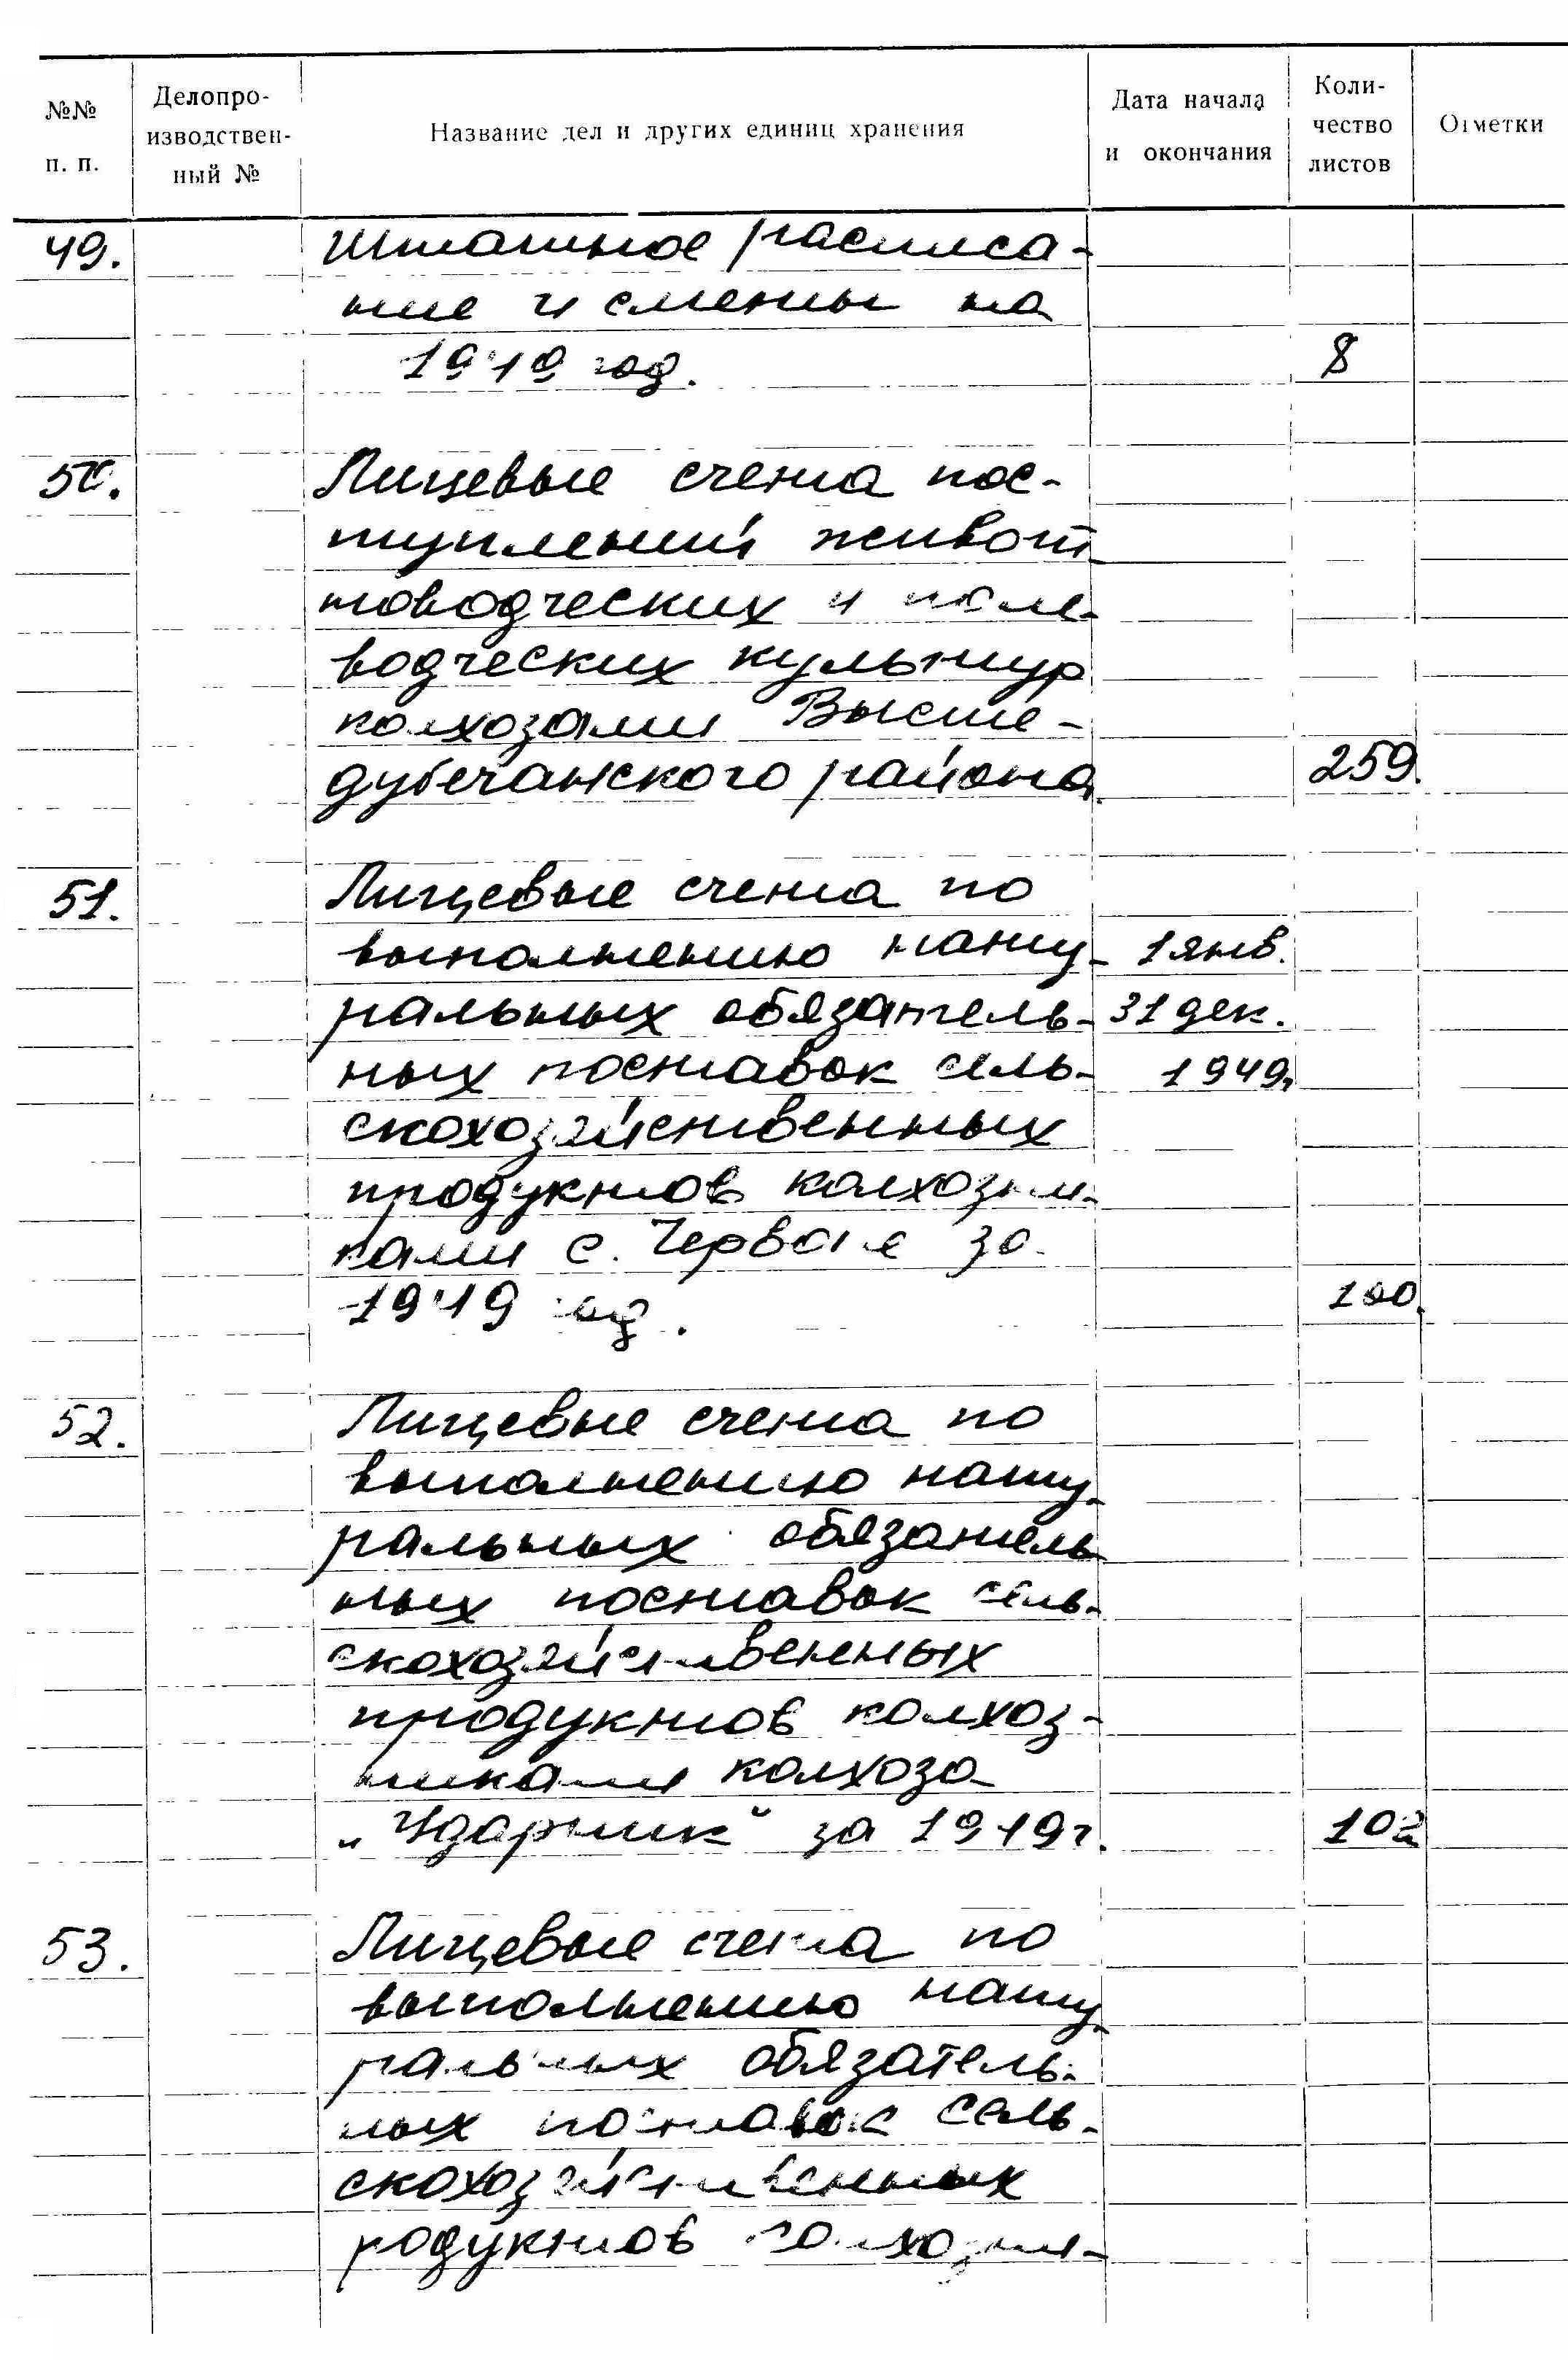 №№ п. п.
Делопро-
изводствен-
ный №
Название дел и других единиц хранения
Дата начала
и окончания
Коли-
чество
листов
Отметки
49. Штатное расписа-
ние и смены на
1949 год. 8
50. Лицевые счета пос-
туплений живот
новодческих и поле-
водческих культур
колхозами Высше-
дубечанского района 259.
51. Лицевые счета по
выполнению нату- 1 янв.
ральных обязатель- 31 дек.
ных поставок сель- 1949.
скохозяйственных
продуктов колхозни-
ками с. за
1949 год. 100.
52. Лицевые счета по
выполнению нату-
ральных обязатель
ных поставок сель-
скохозяйственных
продуктов колхоз-
никами колхоза
„Ударник“ за 1949 г. 102
53. Лицевые счета по
выполнению нату-
ральных обязатель-
ных поставок сель-
скохозяйственных
родуктов колхозни-